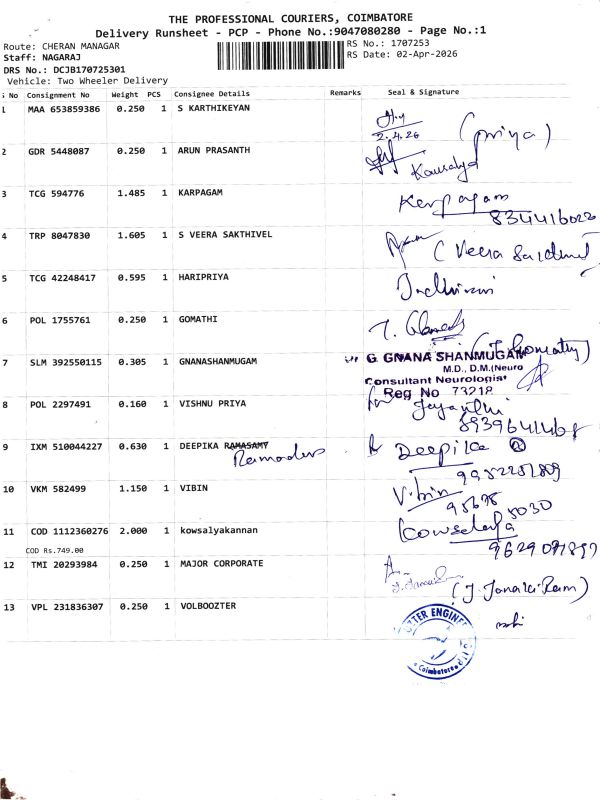 THE PROFESSIONAL COURIERS, COIMBATORE
Delivery Runsheet - PCP - Phone No.:9047080280 - Page No.:1
Route: CHERAN MANAGAR
RS No.: 1707253
Staff: NAGARAJ
RS Date: 02-Apr-2026
DRS No.: DCJB170725301
Vehicle: Two Wheeler Delivery
No Consignment No Weight PCS Consignee Details Remarks Seal & Signature
1 MAA 653859386 0.250 1 S KARTHIKEYAN
2.4.26 (Priya)
2 GDR 5448087 0.250 1 ARUN PRASANTH
Kausalya
3 TCG 594776 1.485 1 KARPAGAM Karpagam
4 TRP 8047830 1.605 1 S VEERA SAKTHIVEL
5 TCG 42248417 0.595 1 HARIPRIYA
6 POL 1755761 0.250 1 GOMATHI
7 SLM 392550115 0.305 1 GNANASHANMUGAM G GNANA SHANMUGAM
M.D., D.M.(Neuro
Consultant Neurologist
Reg No 73218
8 POL 2297491 0.160 1 VISHNU PRIYA Jayanthi
9 IXM 510044227 0.630 1 DEEPIKA RAMASAMY Deepika
10 VKM 582499 1.150 1 VIBIN Vibin
11 COD 1112360276 2.000 1 kowsalyakannan Kowsalya
COD Rs.749.00
12 TMI 20293984 0.250 1 MAJOR CORPORATE
(J. Janaki Ram)
13 VPL 231836307 0.250 1 VOLBOOZTER
Coimbatore